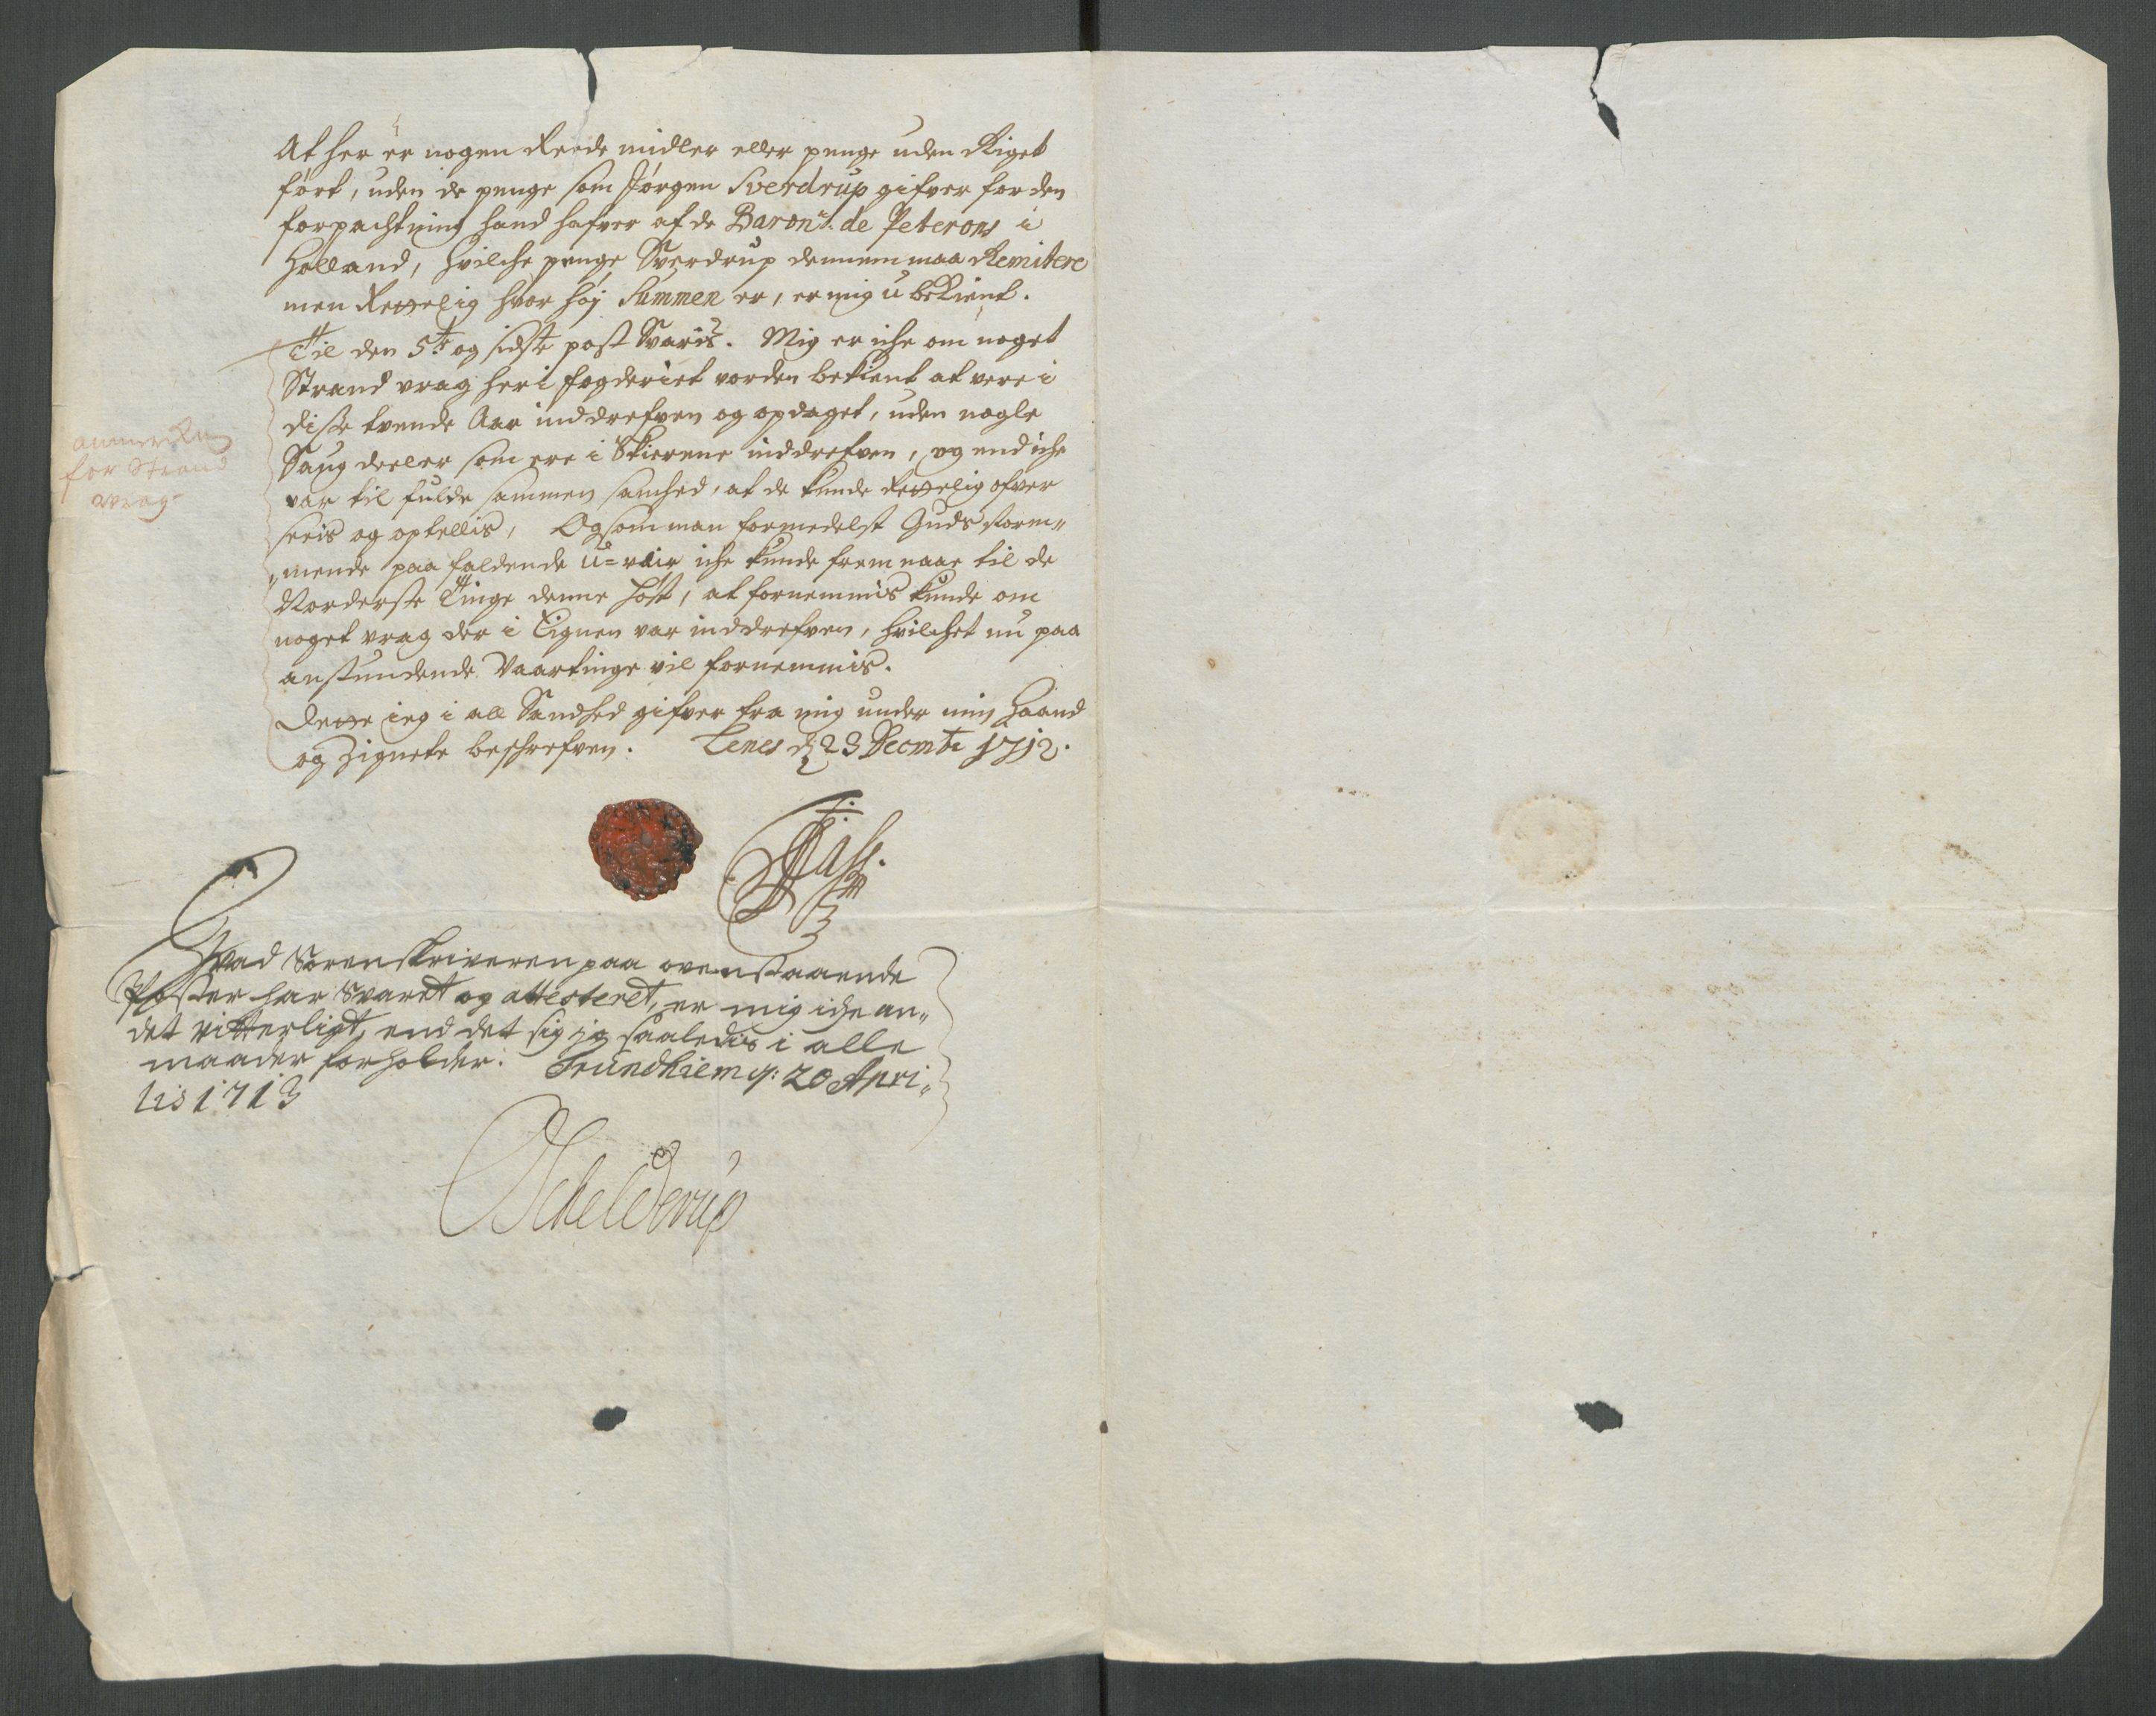 At her er nogen Reede midler eller penge uden Riget
ført, uden de penge som Jørgen Sverdrup gifver for den
forpachtning hand hafver af de Baron: de Peterons i
Holland, hvilche penge Sverdrup dennem maa Remitere
men Retzelig hvor høj Summen er, er mig ubekient.
Til den 5te og sidste post Svaris. Mig er iche om noget
Strand vrag her i fogderiet vorden bekient at vere i
disse tvende Aar inddrefven og opdaget, uden nogle
Saug deeler som ere i Skierene inddrefven, og end iche
var til fulde sammen samled, at de kunde Retzelig ofver
seeis og optellis, Og som man formedelst Guds storm„
„mende paa faldende u=vair iche kunde frem naae til de
Norderste Tinge denne høst, at fornemmis kunde om
noget vrag der i Eignen var inddrefven, hvilchet nu paa
anstundende Vaartinge vil fornemmis.
Dette ieg i all Sandhed gifver fra mig under min Haand
og Zignete beschrefven. Tenes d 23 Decmbr 1712.
anmerkn
for Strand
vrag
Hvad Sorenskriveren paa ovenstaaende
Poster har Svaret og attesteret, er mig iche an„
det vitterligt, end det sig jo saaledis i alle
maader forholder. Trundhiem d: 20 Apri„
lis 1713
Schelderup